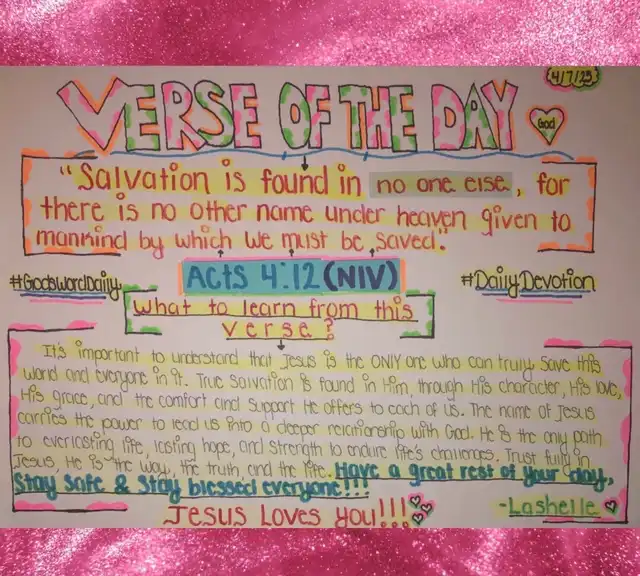 4/7/25
VERSE OF THE DAY
God
"Salvation is found in no one else, for
there is no other name under heaven given to
mankind by which we must be saved."
#GodsWordDaily
ACTS 4:12 (NIV)
#DailyDevotion
What to learn from this
verse?
It's important to understand that Jesus is the ONLY one who can truly save this
world and everyone in it. True salvation is found in Him, through His character, His love,
His grace, and the comfort and support He offers to each of us. The name of Jesus
carries the power to lead us into a deeper relationship with God. He is the only path
to everlasting life, lasting hope, and strength to endure life's challenges. Trust fully in
Jesus, He is the way, the truth, and the life. Have a great rest of your day,
Stay safe & stay blessed everyone!!!
Jesus Loves You!!!
-Lashelle